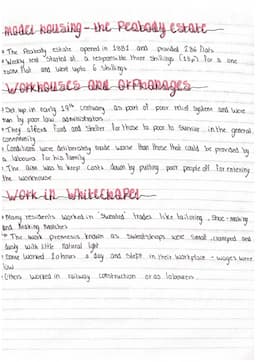 Model housing - the Peabody estate
• The Peabody estate opened in 1881 and provided 286 flats
• Weekly rent started at a responsible three shillings (15p) for a one
room flat and went upto 6 shillings
Workhouses and orphanages
• Set up in early 19th century as part of poor relief system and were
run by poor law administrators
• They offered food and shelter for those to poor to survive in the general
community
• Conditions were deliberately made worse than those that could be provided by
a labourer for his family
• The aim was to keep costs down by putting poor people off for entering
the workhouse
Work in Whitechapel
• Many residents worked in 'sweated' trades like tailoring, shoe-making
and making matches
• The work premises known as sweatshops were small, cramped and
dusty with little natural light
• Some worked 20hours a day and slept in their workplace - wages were
low
• Others worked in railway construction or as labourers